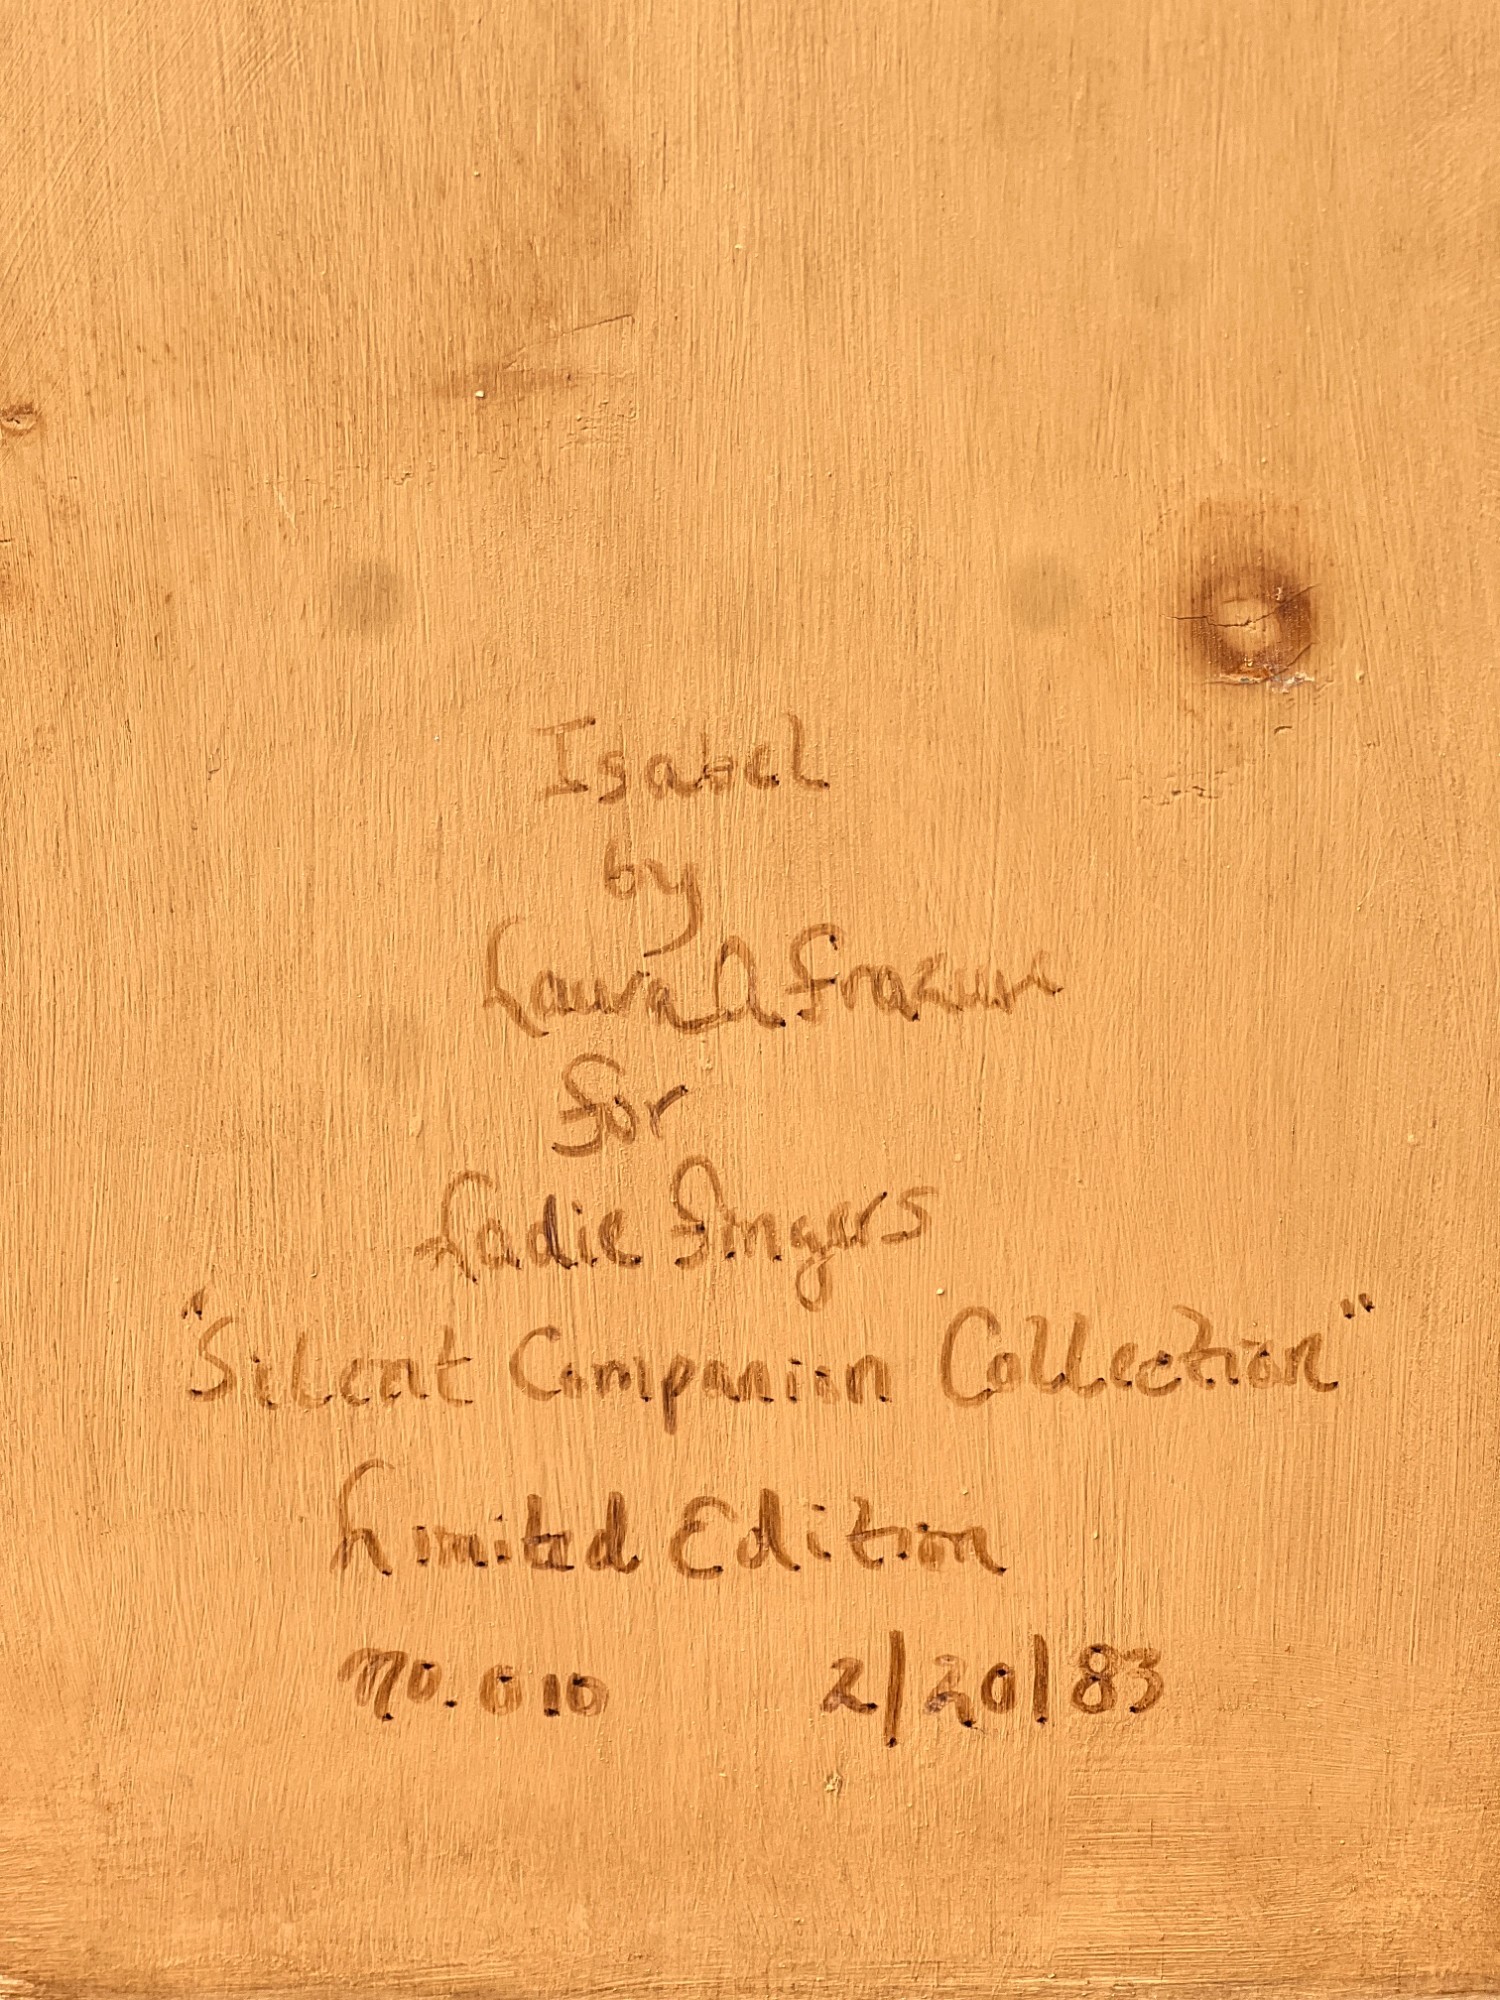 Isabel
by
Laura A
for
Ladie Fingers
"Silent Companion Collection"
Limited Edition
no. 010 2/20/83